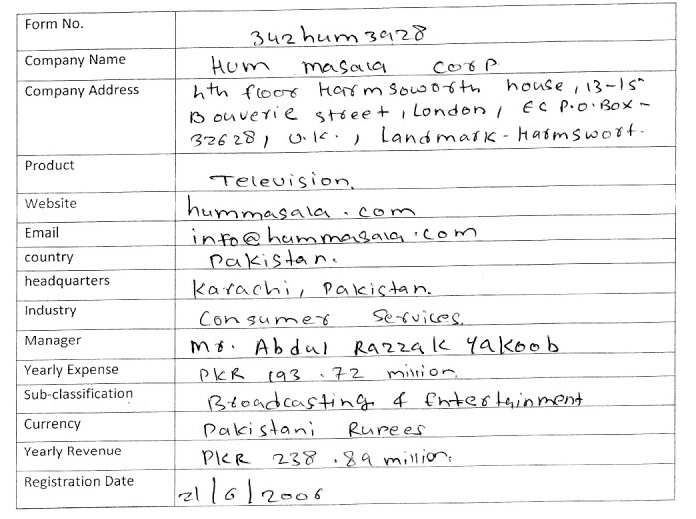 Form No. 342hum3928
Company Name Hum masala corp
Company Address 4th floor Harmsoworth house, 13-15
Bouverie street, London, EC P.O.Box-
32628, U.K., Landmark-Harmswort.
Product Television.
Website hummasala.com
Email info@hummasala.com
country Pakistan.
headquarters Karachi, Pakistan.
Industry Consumer Services.
Manager Mr. Abdul Razzak Yakoob
Yearly Expense PKR 193.72 million.
Sub-classification Broadcasting & Entertainment
Currency Pakistani Rupees
Yearly Revenue PKR 238.89 million.
Registration Date 21/6/2006